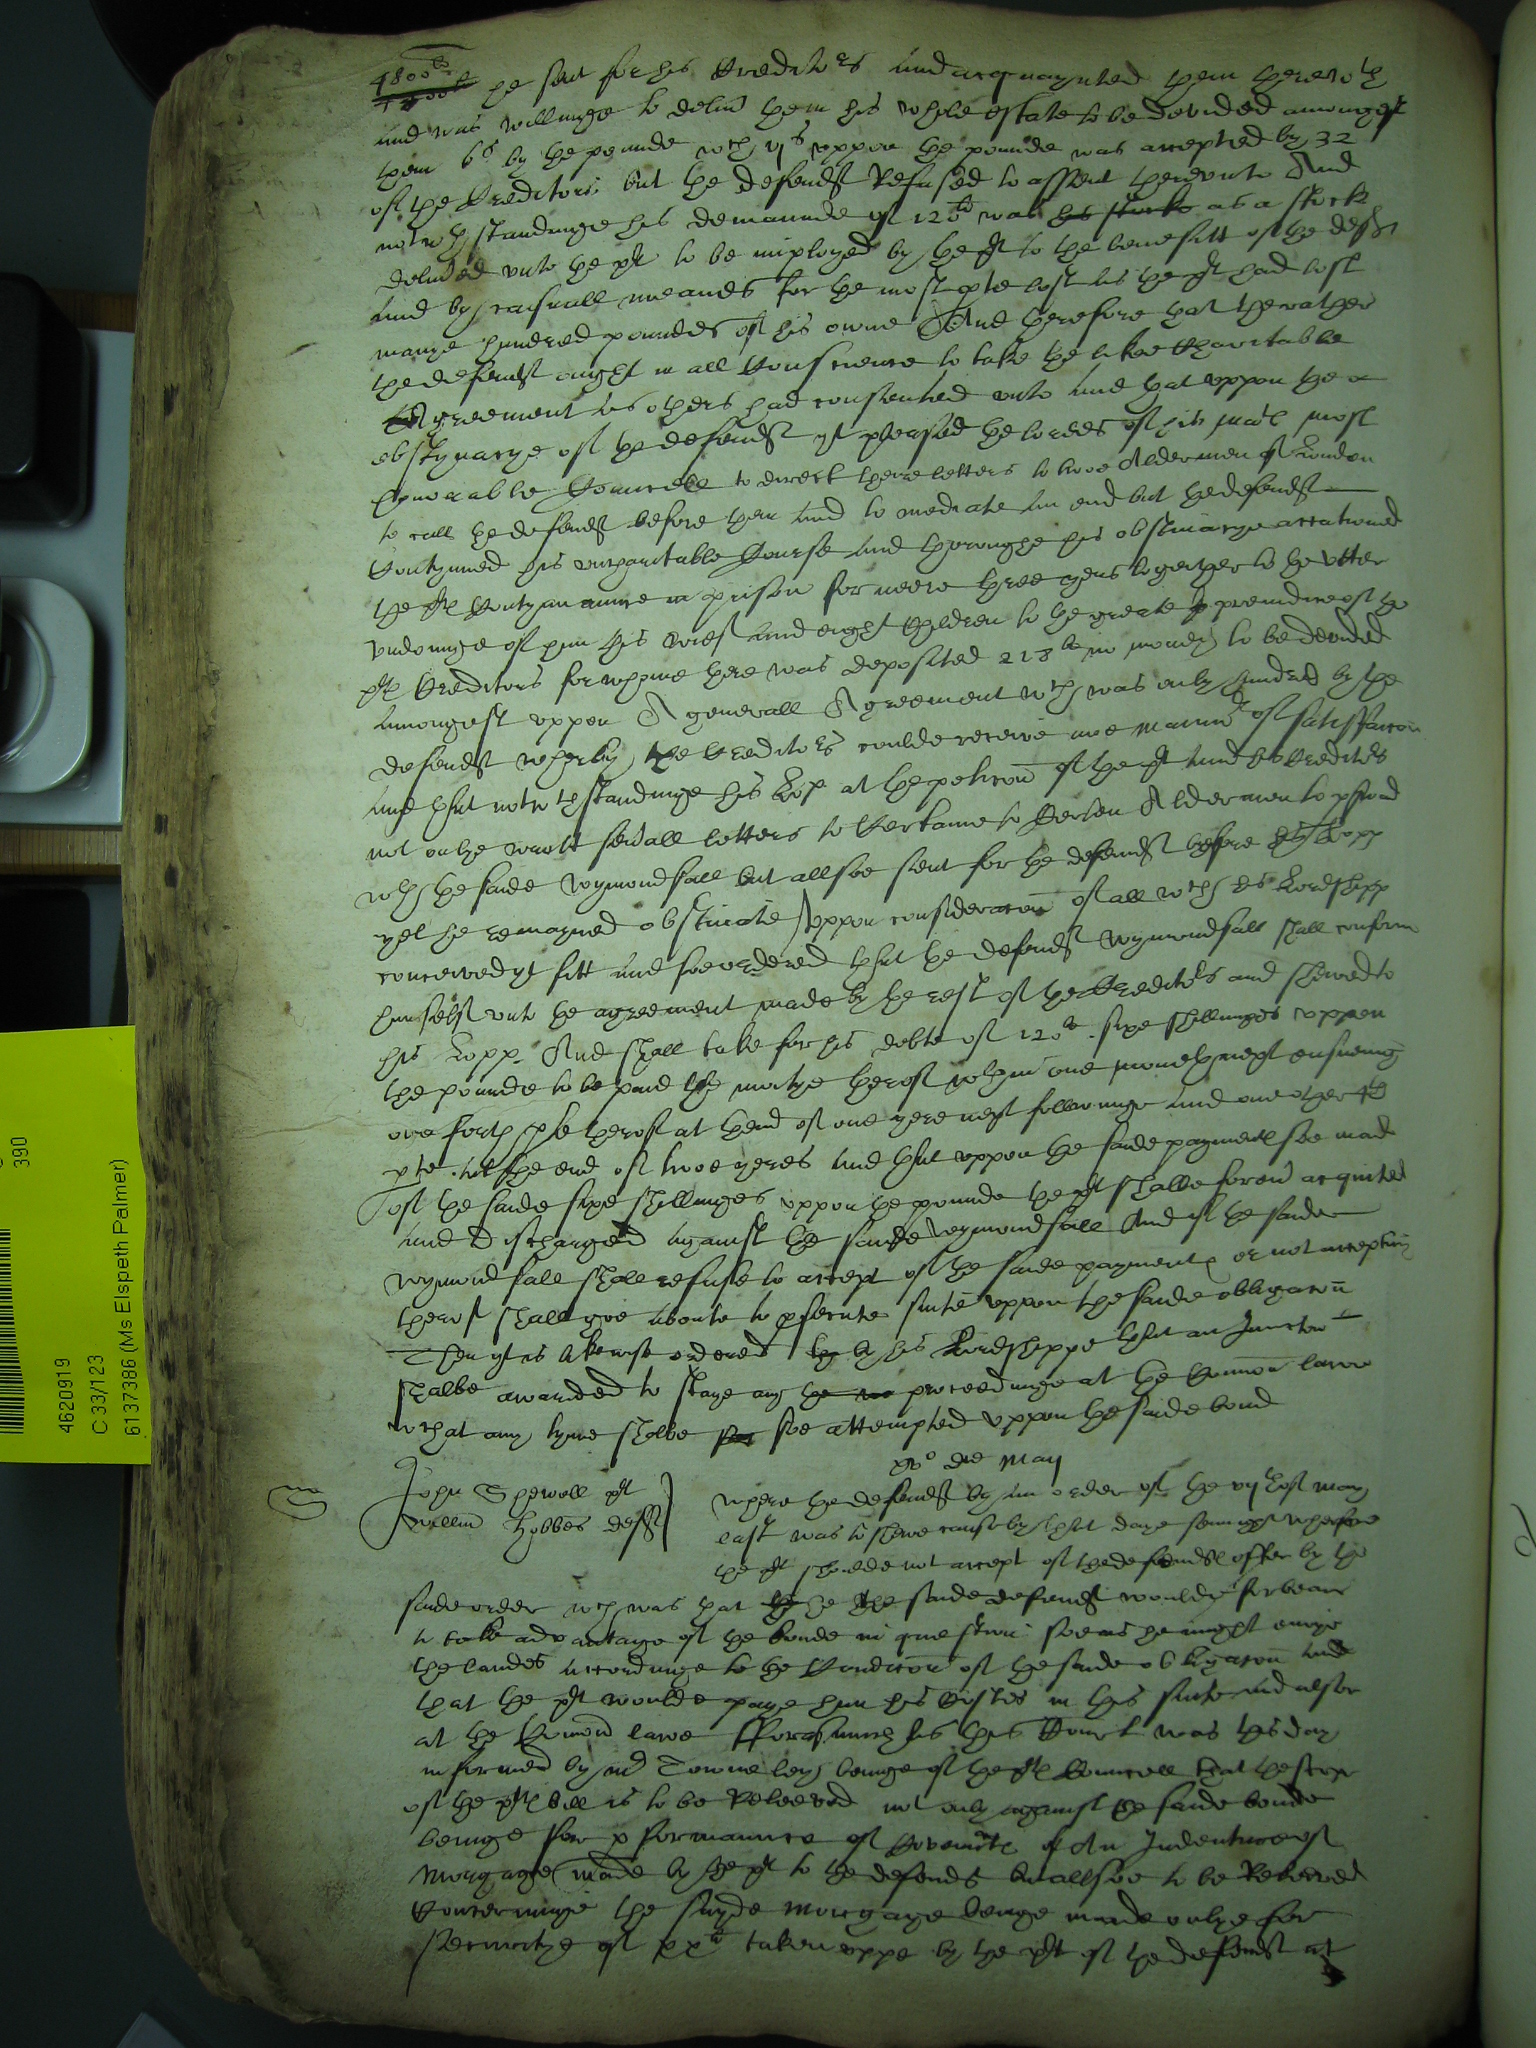 4800li he sent for his Creditors and acquaynted them therewth
and was willinge to deliv them his whole estate to be devided amongest
them 6s by the pounde wch vjs uppon the pounde was accepted by 32
of the Creditors but the defendt Refused to assent thereunto And
notwthstandinge his demaunde of 120li was his stocke as a stock
delived unto the plt to be imployed by the plt to the benefitt of the deft
and by casuall meanes for the most pte lost as the plt had lost
manye hundred poundes of his owne And therefore that the rather
the defendt ought in all Conscience to take the like Charitable
Agreement as others had consented unto and that uppon the
obstynacye of the defendt yt pleased the lordes of his mats most
honorable Councell to direct there letters to twoe Aldermen of London
to call the defendt before them and to mediate an end but the defendt
Contynued his uncharitable Course and throughe his obstinacye occationed
the plts Contynuaunce in prison for neere three yers together to the utter
undoinge of him his wief and eight Children to the greate preiudice of the
plts Creditors for whome there was deposited 218li in money to be devided
amongest uppon A generall Agreement wch was only hindred by the
defendt wherby the Creditors coulde receive noe manner of satisfaccon
and that notwthstandinge his Lop at the peticon of the plt and his Creditors
not onlye wrott sevall letters to Certaine Aldermen to pswad
wth the saide Wymondsall but allsoe sent for the defendt before his Lopp
yet he remayned obstinate / Uppon consideracon of all wch his Lordshipp
conceived yt fitt and soe ordered that the defendt Wymondsall shall conform
himselfe unto the agreement made by the rest of the Creditors and shewed to
his Lopp. And shall take for his debte of 120li sixe shillinges uppon
the pounde to be paid the moitye therof wthin one moneth next ensueing
one forth pte therof at thend of one yere next followinge and one other 4th
pte at the end of twoe yeres and that uppon the saide payment soe mad
of the saide sixe shillinges uppon the pounde the plt shalbe forev acquited
and discharged against the saide Wymondsall And if the saide
Wymondsall shall refuse to accept of the saide payment or not acceptinge
therof shall goe aboute to psecute suite uppon the saide obligacon
Then yt is likewise ordered by his Lordshippe that an Iniuncton
shalbe awarded to staye any the proceedinge at the Common lawe
what any tyme shalbe soe attempted uppon the saide bond
xvo die May
John Shewell plt
Willm Hobbes deft
where the defendt by an order of the vijth of May
last was to shewe cause by that daye sennight wherfore
the plt shoulde not accept of the defendts offer by the
saide order wch was that he the saide defendt woulde forbeare
to take advantage of the bonde in question soe as he might enioye
the landes accordinge to the Condicon of the saide obligacon and
that the plt woulde paye him his Costes in this suite and alsoe
at the Comon lawe fforasmuch as this Court was this day
informed by mr Towneley beinge of the plts Councell that the scope
of the plts bill is to be Releeved not only against the saide bonde
beinge for pformaunce of Covenntes of An Indenture of
Morgage made by the plt to the defendt but allsoe to be Releeved
Concerninge the sayde Morgage beinge made onlye for
securitye of xxli taken uppe by the plt of the defendt at
390
4620919
C 33/123
6137386 (Ms Elspeth Palmer)